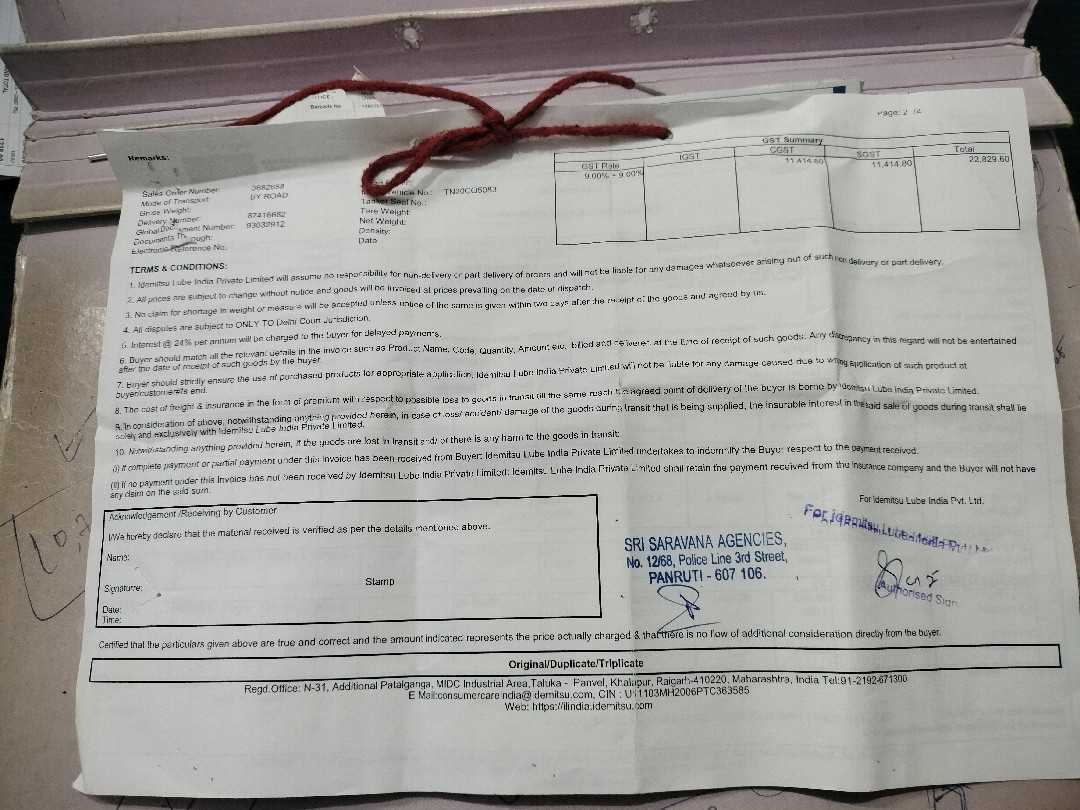 Page: 2
Remarks:
Sales Order Number: 3682658
Mode of Transport: BY ROAD
Gross Weight:
Delivery Number: 87416682
Global Document Number: 93033912
Documents Through:
Electronic Reference No.:
Vehicle No.: TN20CQ5083
Tanker Seal No.:
Tare Weight:
Net Weight:
Density:
Date
GST Summary
GST Rate IGST CGST SGST Total
9.00% - 9.00% 11,414.80 11,414.80 22,829.60
TERMS & CONDITIONS:
1. Idemitsu Lube India Private Limited will assume no responsibility for non-delivery or part delivery of orders and will not be liable for any damages whatsoever arising out of such non delivery or part delivery.
2. All prices are subject to change without notice and goods will be invoiced at prices prevailing on the date of dispatch.
3. No claim for shortage in weight or measure will be accepted unless notice of the same is given within two days after the receipt of the goods and agreed by us.
4. All disputes are subject to ONLY TO Delhi Court Jurisdiction.
5. Interest @ 24% per annum will be charged to the buyer for delayed payments.
6. Buyer should match all the relevant details in the invoice such as Product Name, Code, Quantity, Amount etc. billed and delivered, at the time of receipt of such goods. Any discrepancy in this regard will not be entertained
after the date of receipt of such goods by the buyer.
7. Buyer should strictly ensure the use of purchased products for appropriate application, Idemitsu Lube India Private Limited will not be liable for any damage caused due to wrong application of such product at
buyer/customer's end.
8. The cost of freight & insurance in the form of premium with respect to possible loss to goods in transit till the same reach the agreed point of delivery of the buyer is borne by Idemitsu Lube India Private Limited.
9. In consideration of above, notwithstanding anything provided herein, in case of loss/ accident/ damage of the goods during transit that is being supplied, the insurable interest in the said sale of goods during transit shall lie
solely and exclusively with Idemitsu Lube India Private Limited.
10. Notwithstanding anything provided herein, if the goods are lost in transit and/ or there is any harm to the goods in transit:
(i) If complete payment or partial payment under this Invoice has been received from Buyer: Idemitsu Lube India Private Limited undertakes to indemnify the Buyer respect to the payment received.
(ii) If no payment under this Invoice has not been received by Idemitsu Lube India Private Limited: Idemitsu Lube India Private Limited shall retain the payment received from the Insurance company and the Buyer will not have
any claim on the said sum.
Acknowledgement /Receiving by Customer
I/We hereby declare that the material received is verified as per the details mentioned above.
Name:
Signature:
Stamp
Date:
Time:
SRI SARAVANA AGENCIES,
No. 12/68, Police Line 3rd Street,
PANRUTI - 607 106.
For Idemitsu Lube India Pvt. Ltd.
For Idemitsu Lube India Pvt Ltd
Authorised Sign
Certified that the particulars given above are true and correct and the amount indicated represents the price actually charged & that there is no flow of additional consideration directly from the buyer.
Original/Duplicate/Triplicate
Regd.Office: N-31, Additional Patalganga, MIDC Industrial Area,Taluka - Panvel, Khalapur, Raigarh-410220, Maharashtra, India Tel:91-2192-671300
E Mail:consumercareindia@idemitsu.com, CIN : U11103MH2006PTC363585
Web: https://ilindia.idemitsu.com